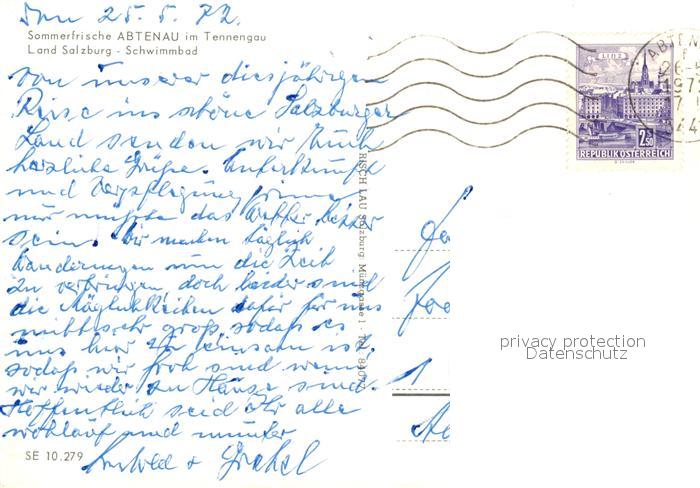 den 25.5.72.
Sommerfrische ABTENAU im Tennengau
Land Salzburg - Schwimmbad
von unserer diesjährigen
Reise ins schöne Salzburger
Land senden wir Euch
herzliche Grüße. Unterkunft
und Verpflegung prima
nur müßte das Wetter besser
sein. Wir machen täglich
Wanderungen um die Zeit
zu verbringen, doch leider sind
die Möglichkeiten dafür für uns
nicht sehr groß, sodaß es
uns hier zu einsam ist.
sodaß wir froh sind wenn
wir wieder zu Hause sind.
Hoffentlich seid Ihr alle
wohlauf und munter
+ Gretel
SE 10.279
RISCH LAU Salzburg
LINZ
2.50
REPUBLIK ÖSTERREICH
ABTEN
1972
1
privacy protection
Datenschutz